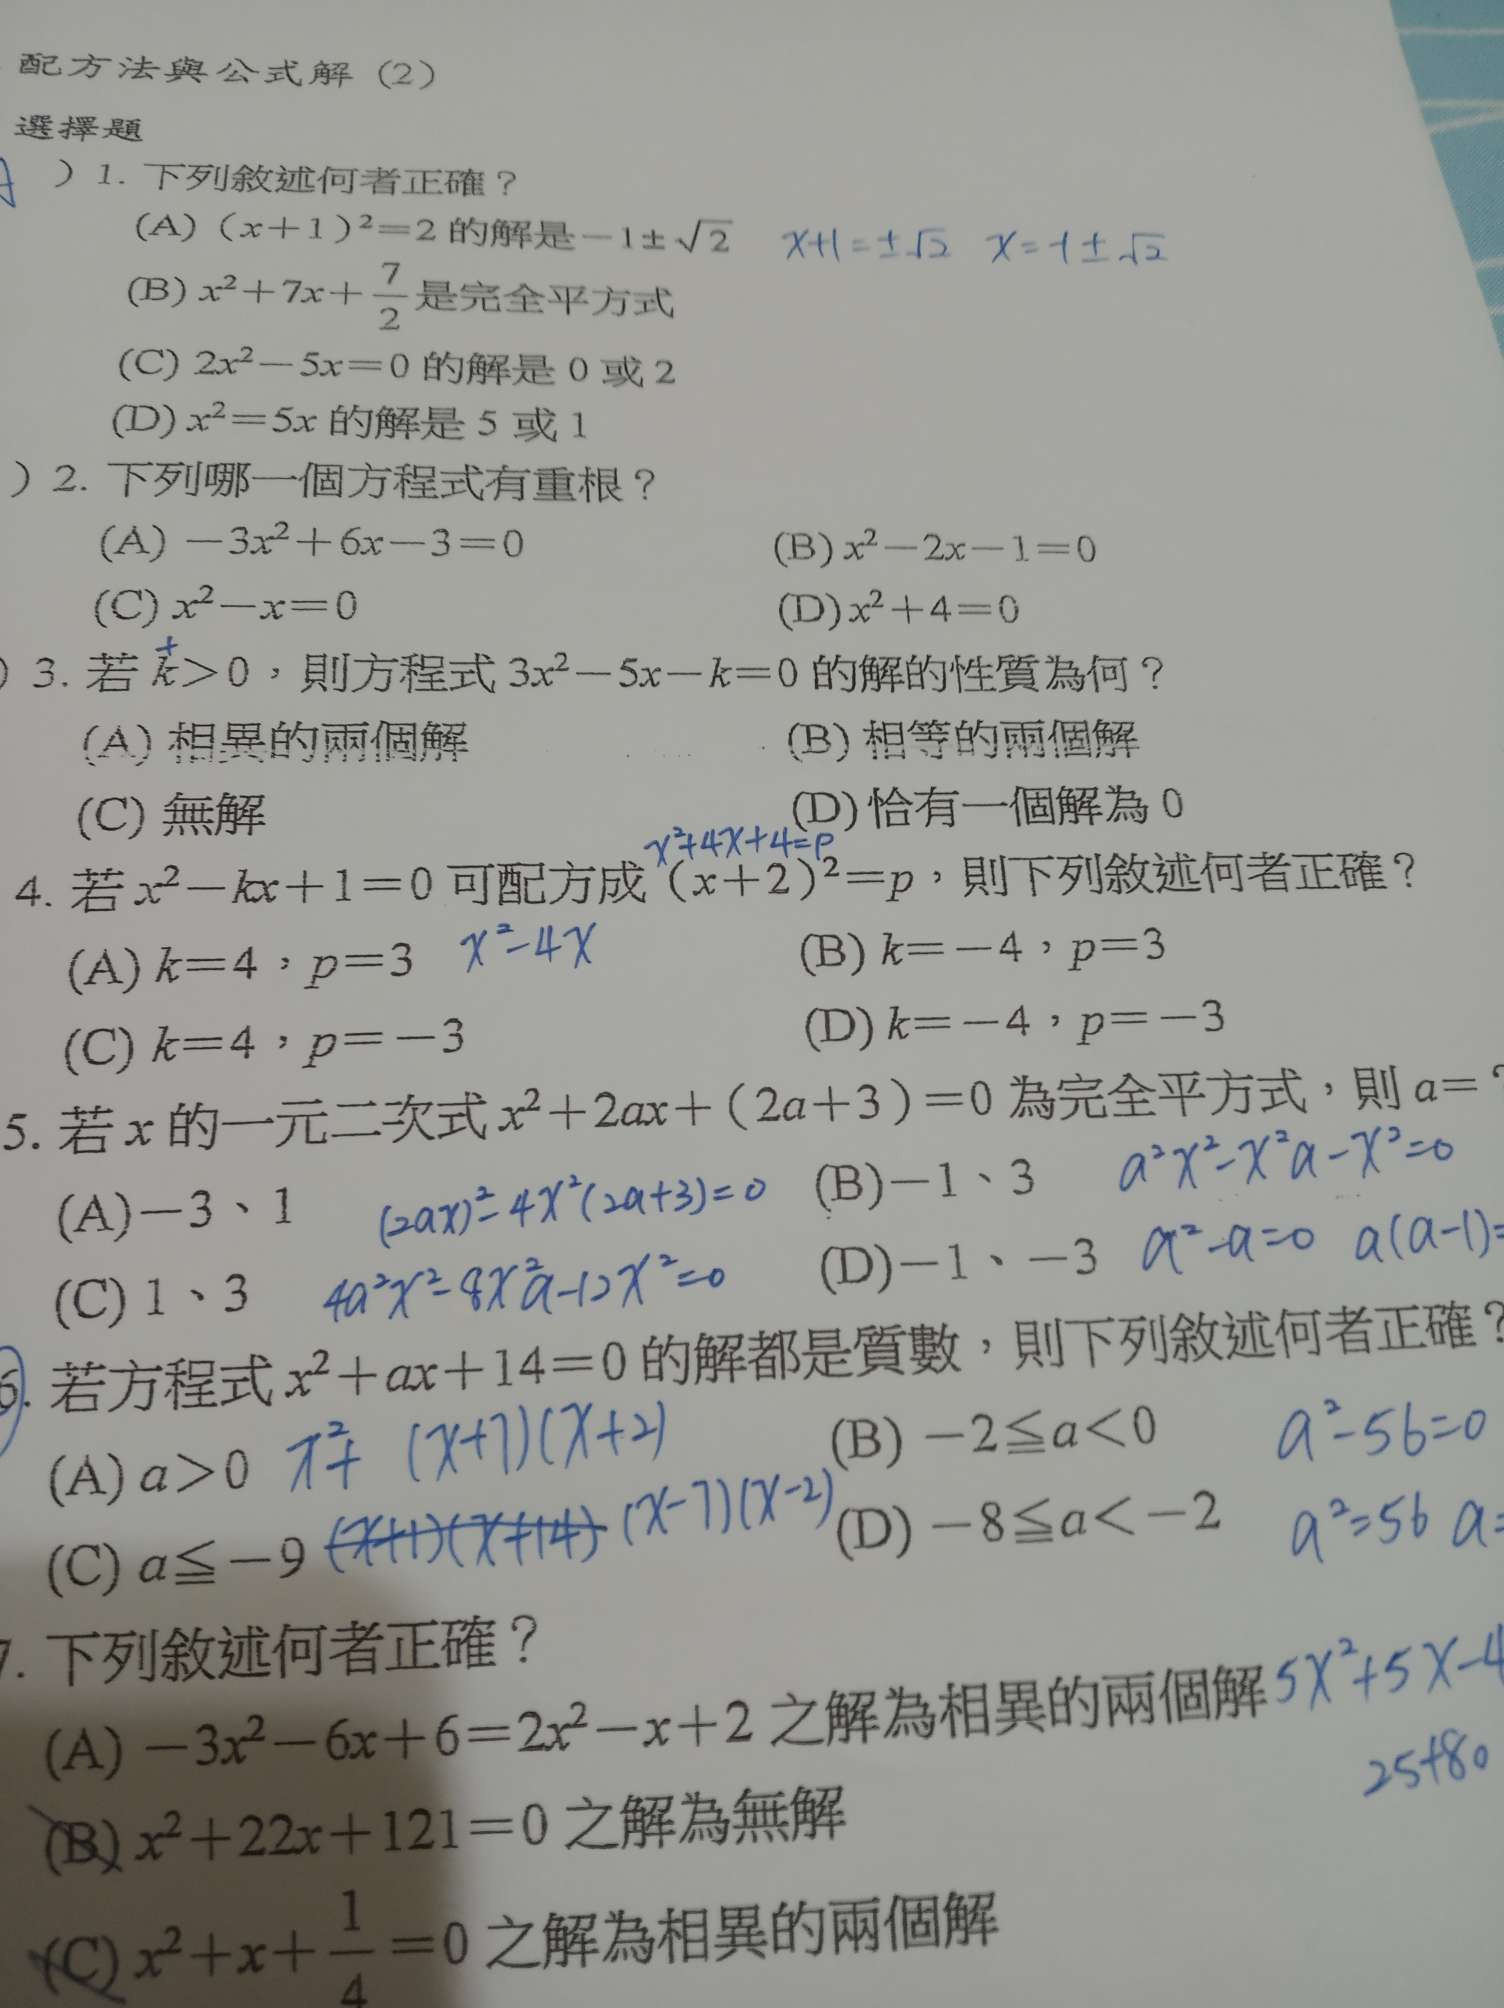 配方法與公式解（2）
選擇題
）1. 下列敘述何者正確？
(A)（x＋1）²＝2 的解是－1±√2  x+1=±√2  x=-1±√2
(B) x²＋7x＋7/2 是完全平方式
(C) 2x²－5x＝0 的解是 0 或 2
(D) x²＝5x 的解是 5 或 1
）2. 下列哪一個方程式有重根？
(A) －3x²＋6x－3＝0  (B) x²－2x－1＝0
(C) x²－x＝0  (D) x²＋4＝0
+
）3. 若 k＞0，則方程式 3x²－5x－k＝0 的解的性質為何？
(A) 相異的兩個解  (B) 相等的兩個解
(C) 無解  (D) 恰有一個解為 0
x²+4x+4=p
4. 若 x²－kx＋1＝0 可配方成（x＋2）²＝p，則下列敘述何者正確？
(A) k＝4，p＝3  x²-4x  (B) k＝－4，p＝3
(C) k＝4，p＝－3  (D) k＝－4，p＝－3
5. 若 x 的一元二次式 x²＋2ax＋（2a＋3）＝0 為完全平方式，則 a＝？
(A)－3、1  (2ax)²-4x²(2a+3)=0  (B)－1、3  a²x²-x²a-x²=0
(C) 1、3  4a²x²-8x²a-12x²=0  (D)－1、－3  a²-a=0  a(a-1)=
6. 若方程式 x²＋ax＋14＝0 的解都是質數，則下列敘述何者正確？
(A) a＞0  x²+  (x+7)(x+2)  (B) －2≦a＜0  a²-56=0
(C) a≦－9  (x+1)(x+14)  (x-7)(x-2)  (D) －8≦a＜－2  a²=56  a=
7. 下列敘述何者正確？
(A) －3x²－6x＋6＝2x²－x＋2 之解為相異的兩個解  5x²+5x-4
25+80
(B) x²＋22x＋121＝0 之解為無解
(C) x²＋x＋1/4＝0 之解為相異的兩個解